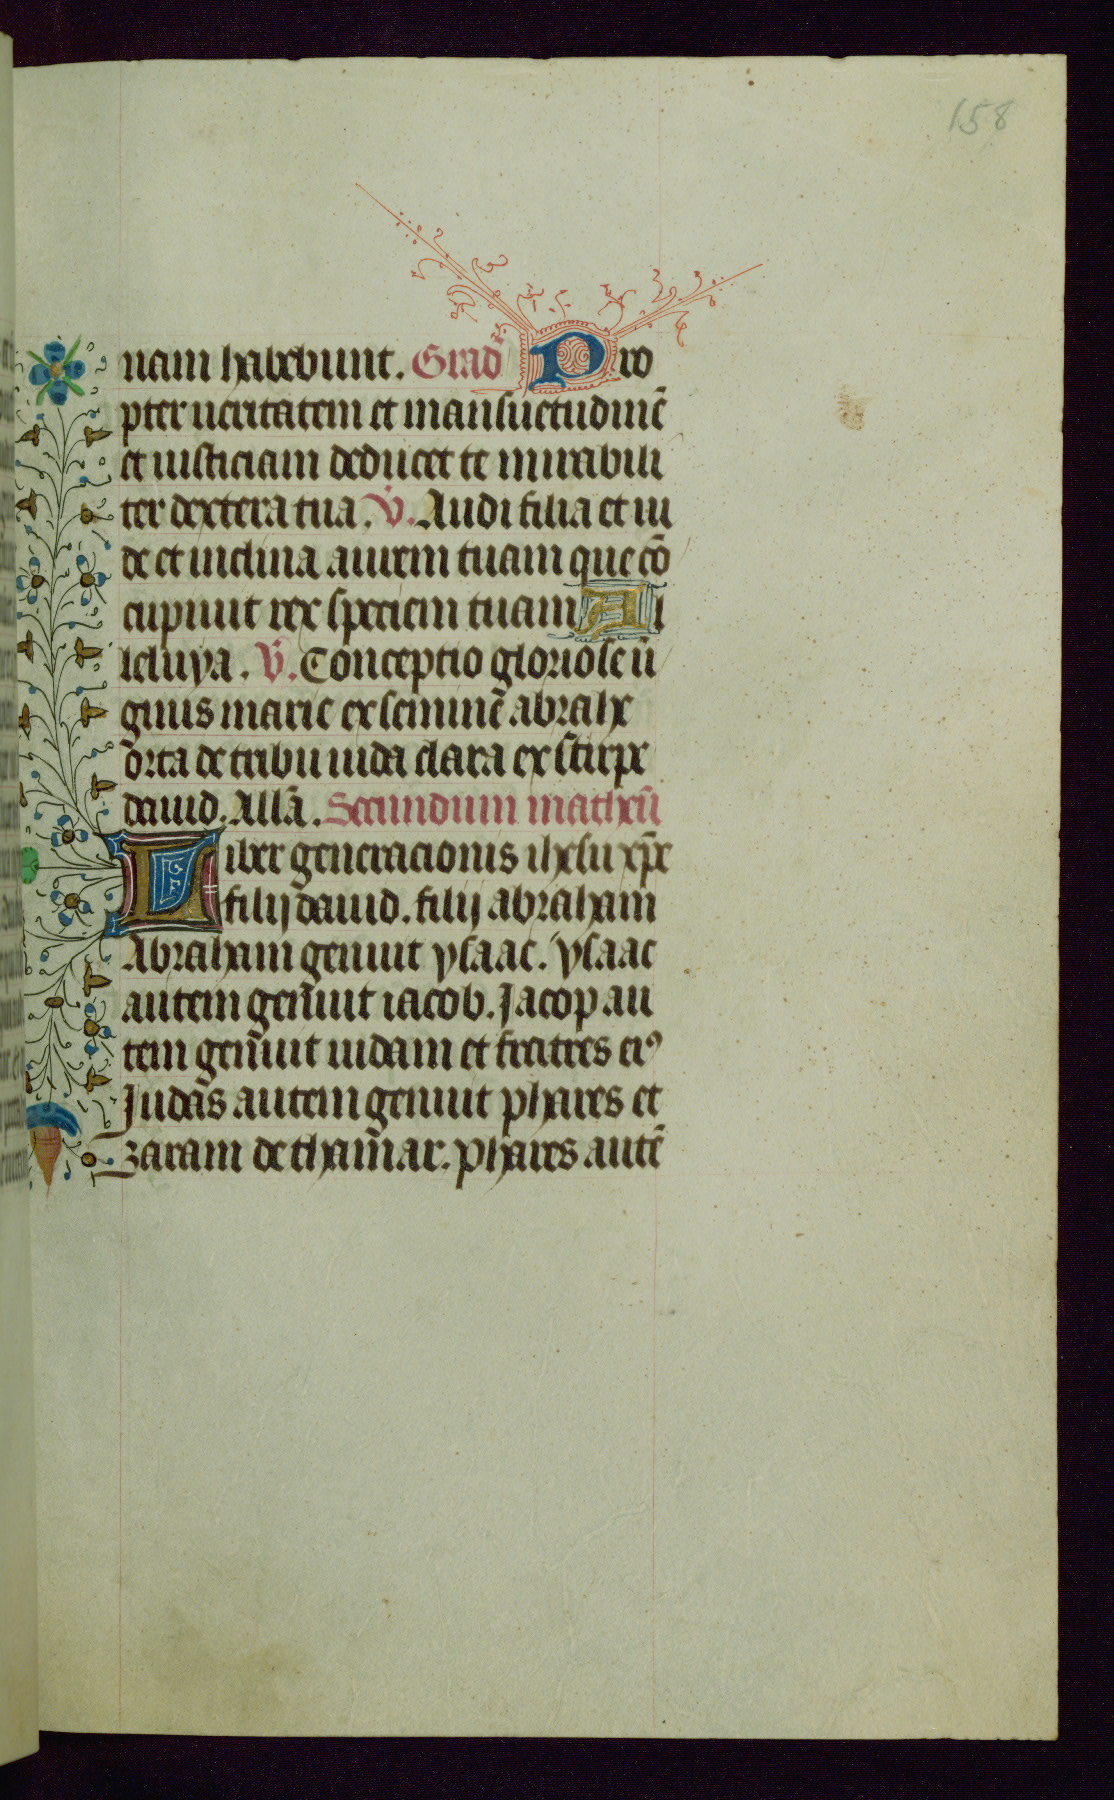 158
nam habebunt. Grad̅ Pro
pter ueritatem et mansuetudinē
et iusticiam deducet te mirabili
ter dextera tua. V̇. Audi filia et ui
de et inclina aurem tuam que cō
cupiuit rex speciem tuam Al
leluya. V̇. Conceptio gloriose ū
ginis marie ex seminē abrahe
orta de tribu iuda clara ex stirpe
dauid. Allā. Secundum matheū
Liber generacionis ihesu xp̄e
filij dauid. filij abraham
Abraham genuit ysaac. ysaac
autem genuit iacob. Jacop au
tem genuit iudam et fratres eiꝰ
Judas autem genuit phares et
zaram de thamar. phares autē